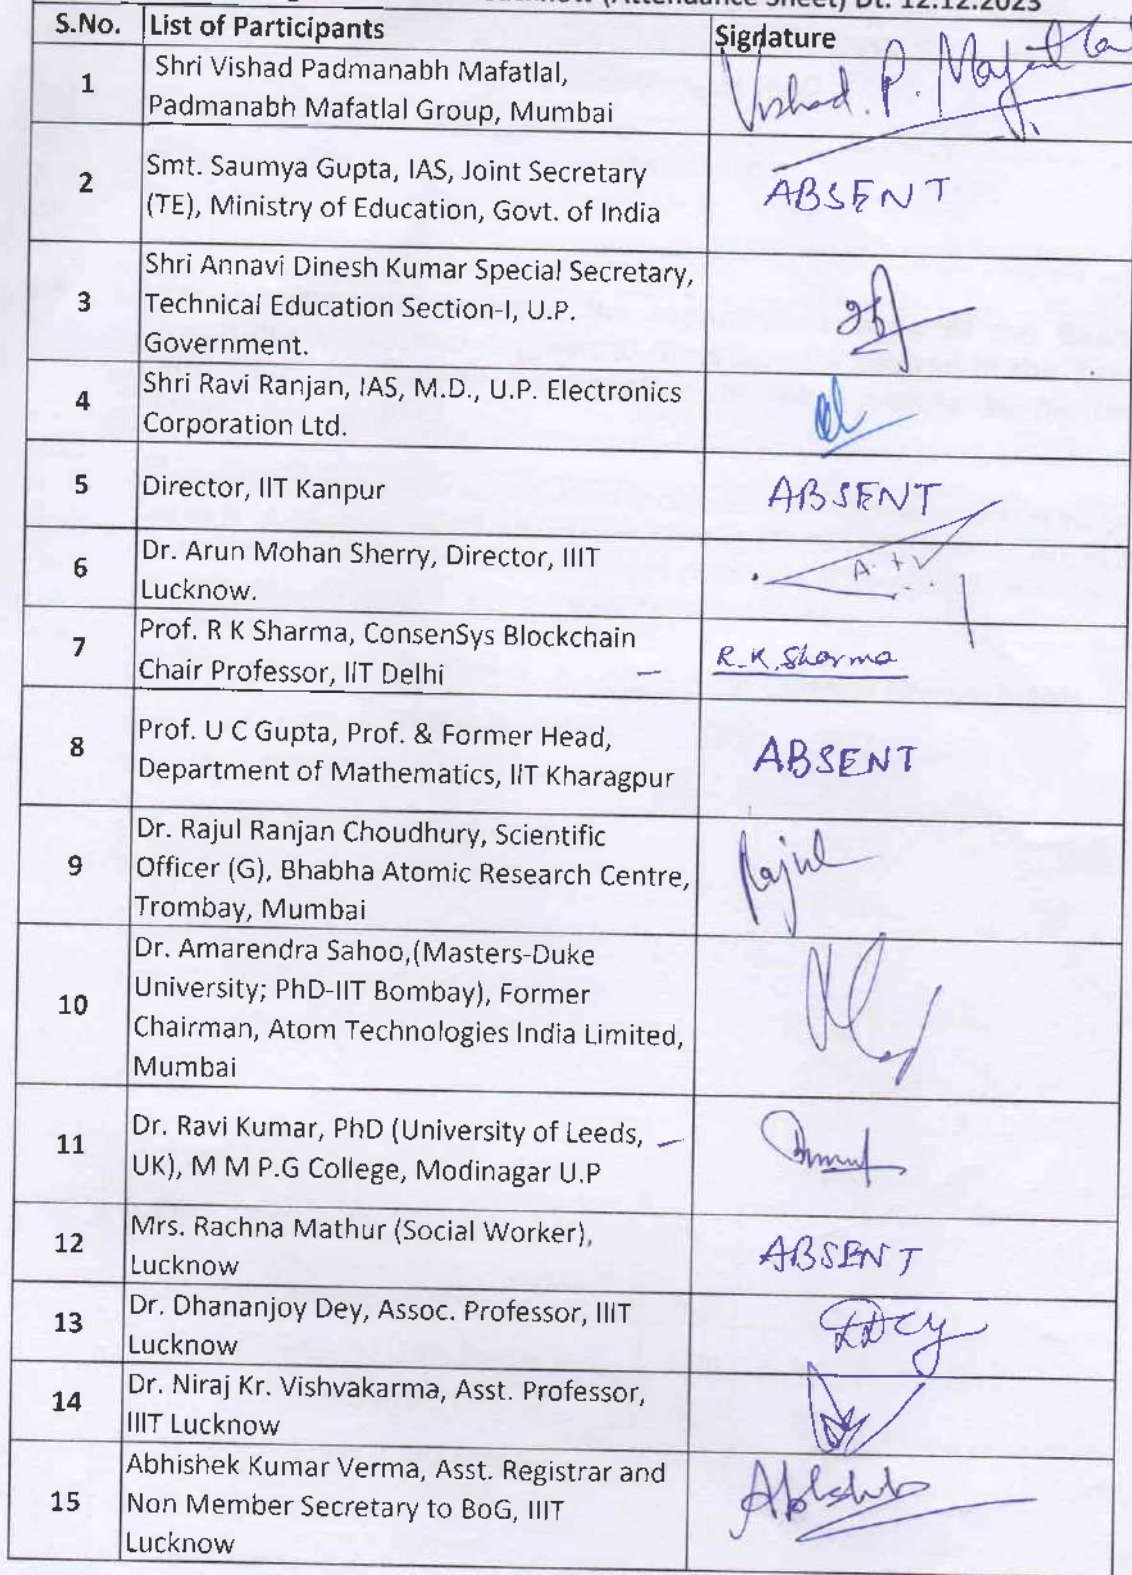 (Attendance Sheet) Dt. 12.12.2023
S.No. List of Participants Signature
1 Shri Vishad Padmanabh Mafatlal,
Padmanabh Mafatlal Group, Mumbai
Vishad. P. Mafatlal
2 Smt. Saumya Gupta, IAS, Joint Secretary
(TE), Ministry of Education, Govt. of India
ABSENT
3 Shri Annavi Dinesh Kumar Special Secretary,
Technical Education Section-I, U.P.
Government.
4 Shri Ravi Ranjan, IAS, M.D., U.P. Electronics
Corporation Ltd.
5 Director, IIT Kanpur ABSENT
6 Dr. Arun Mohan Sherry, Director, IIIT
Lucknow.
7 Prof. R K Sharma, ConsenSys Blockchain
Chair Professor, IIT Delhi –
R.K. Sharma
8 Prof. U C Gupta, Prof. & Former Head,
Department of Mathematics, IIT Kharagpur
ABSENT
9 Dr. Rajul Ranjan Choudhury, Scientific
Officer (G), Bhabha Atomic Research Centre,
Trombay, Mumbai
Rajul
10 Dr. Amarendra Sahoo,(Masters-Duke
University; PhD-IIT Bombay), Former
Chairman, Atom Technologies India Limited,
Mumbai
11 Dr. Ravi Kumar, PhD (University of Leeds, –
UK), M M P.G College, Modinagar U.P
12 Mrs. Rachna Mathur (Social Worker),
Lucknow
ABSENT
13 Dr. Dhananjoy Dey, Assoc. Professor, IIIT
Lucknow
DDey
14 Dr. Niraj Kr. Vishvakarma, Asst. Professor,
IIIT Lucknow
15 Abhishek Kumar Verma, Asst. Registrar and
Non Member Secretary to BoG, IIIT
Lucknow